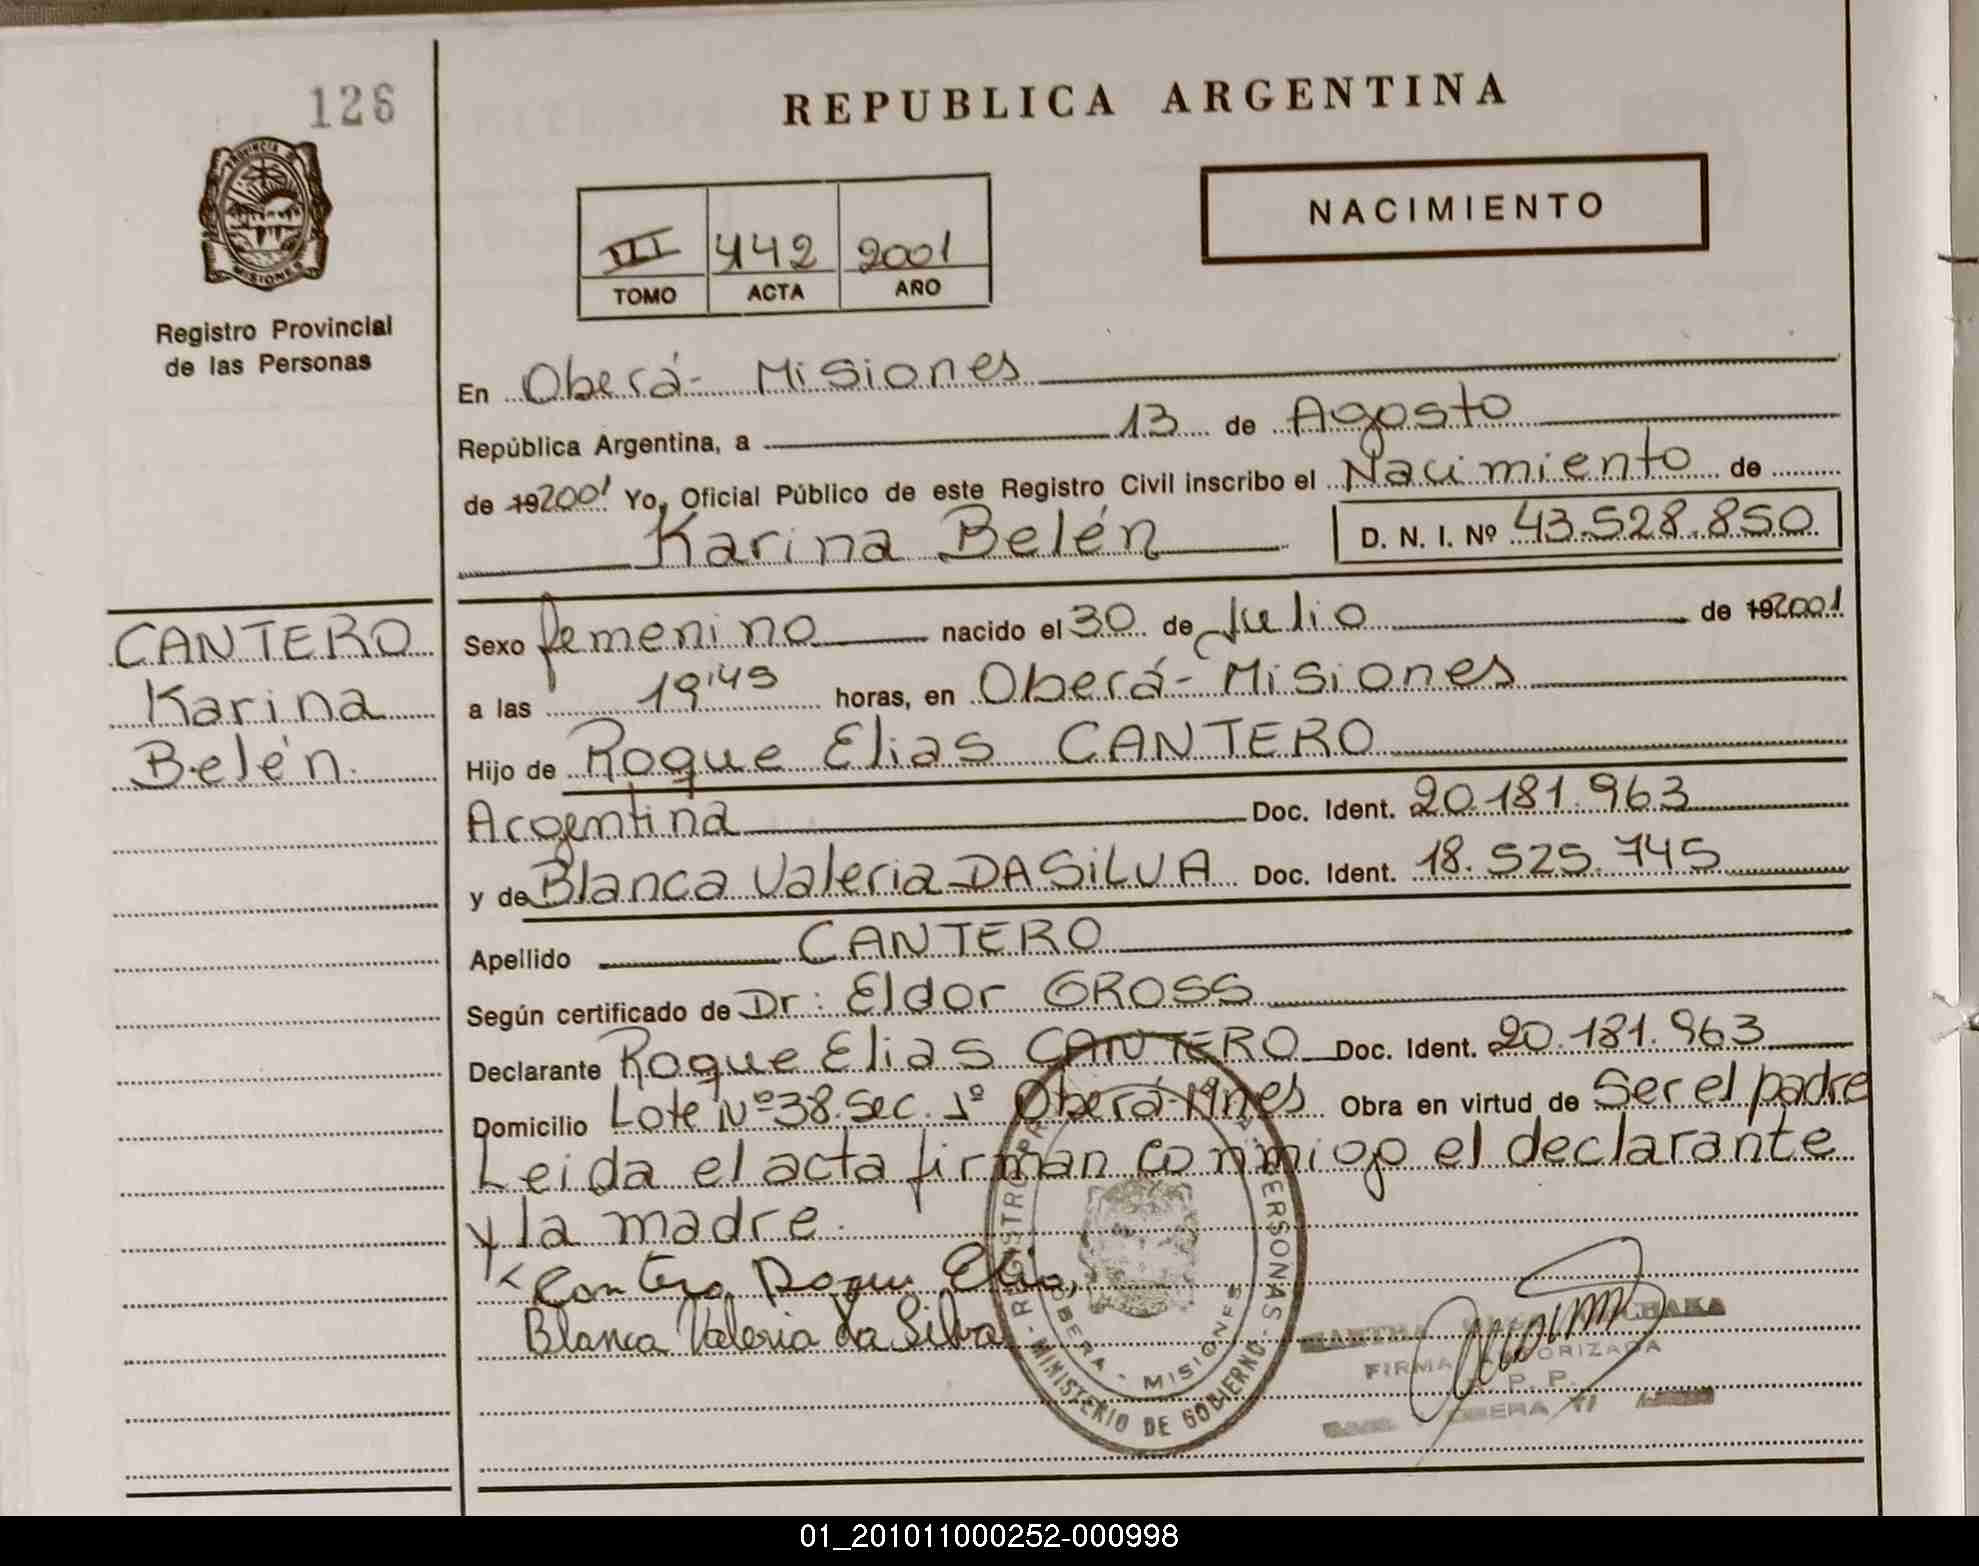 126
REPUBLICA ARGENTINA
NACIMIENTO
III 442 2001
TOMO ACTA AÑO
PROVINCIA DE MISIONES
Registro Provincial
de las Personas
En Oberá- Misiones
República Argentina, a 13 de Agosto
de 192001 Yo, Oficial Público de este Registro Civil inscribo el Nacimiento de
Karina Belén D. N. I. Nº 43.528.850
CANTERO
Karina
Belén.
Sexo femenino nacido el 30 de Julio de 192001
a las 19'45 horas, en Oberá- Misiones
Hijo de Roque Elias CANTERO
Argentina Doc. Ident. 20.181.963
y de Blanca Valeria DA SiLVA Doc. Ident. 18.525.745
Apellido CANTERO
Según certificado de Dr: Eldor GROSS
Declarante Roque Elias CANTERO Doc. Ident. 20.181.963
Domicilio Lote Nº 38. Sec. 1º Oberá-Mnes Obra en virtud de Ser el padre
Leida el acta firman conmigo el declarante
y la madre.
Cantero Roque Elia
Blanca Valeria da Silva
REGISTRO PERSONAS - MINISTERIO DE GOBIERNO -
OBERA - MISIONES
MARTHA
FIRMA AUTORIZADA
R. P. P.
OBERA
01_201011000252-000998